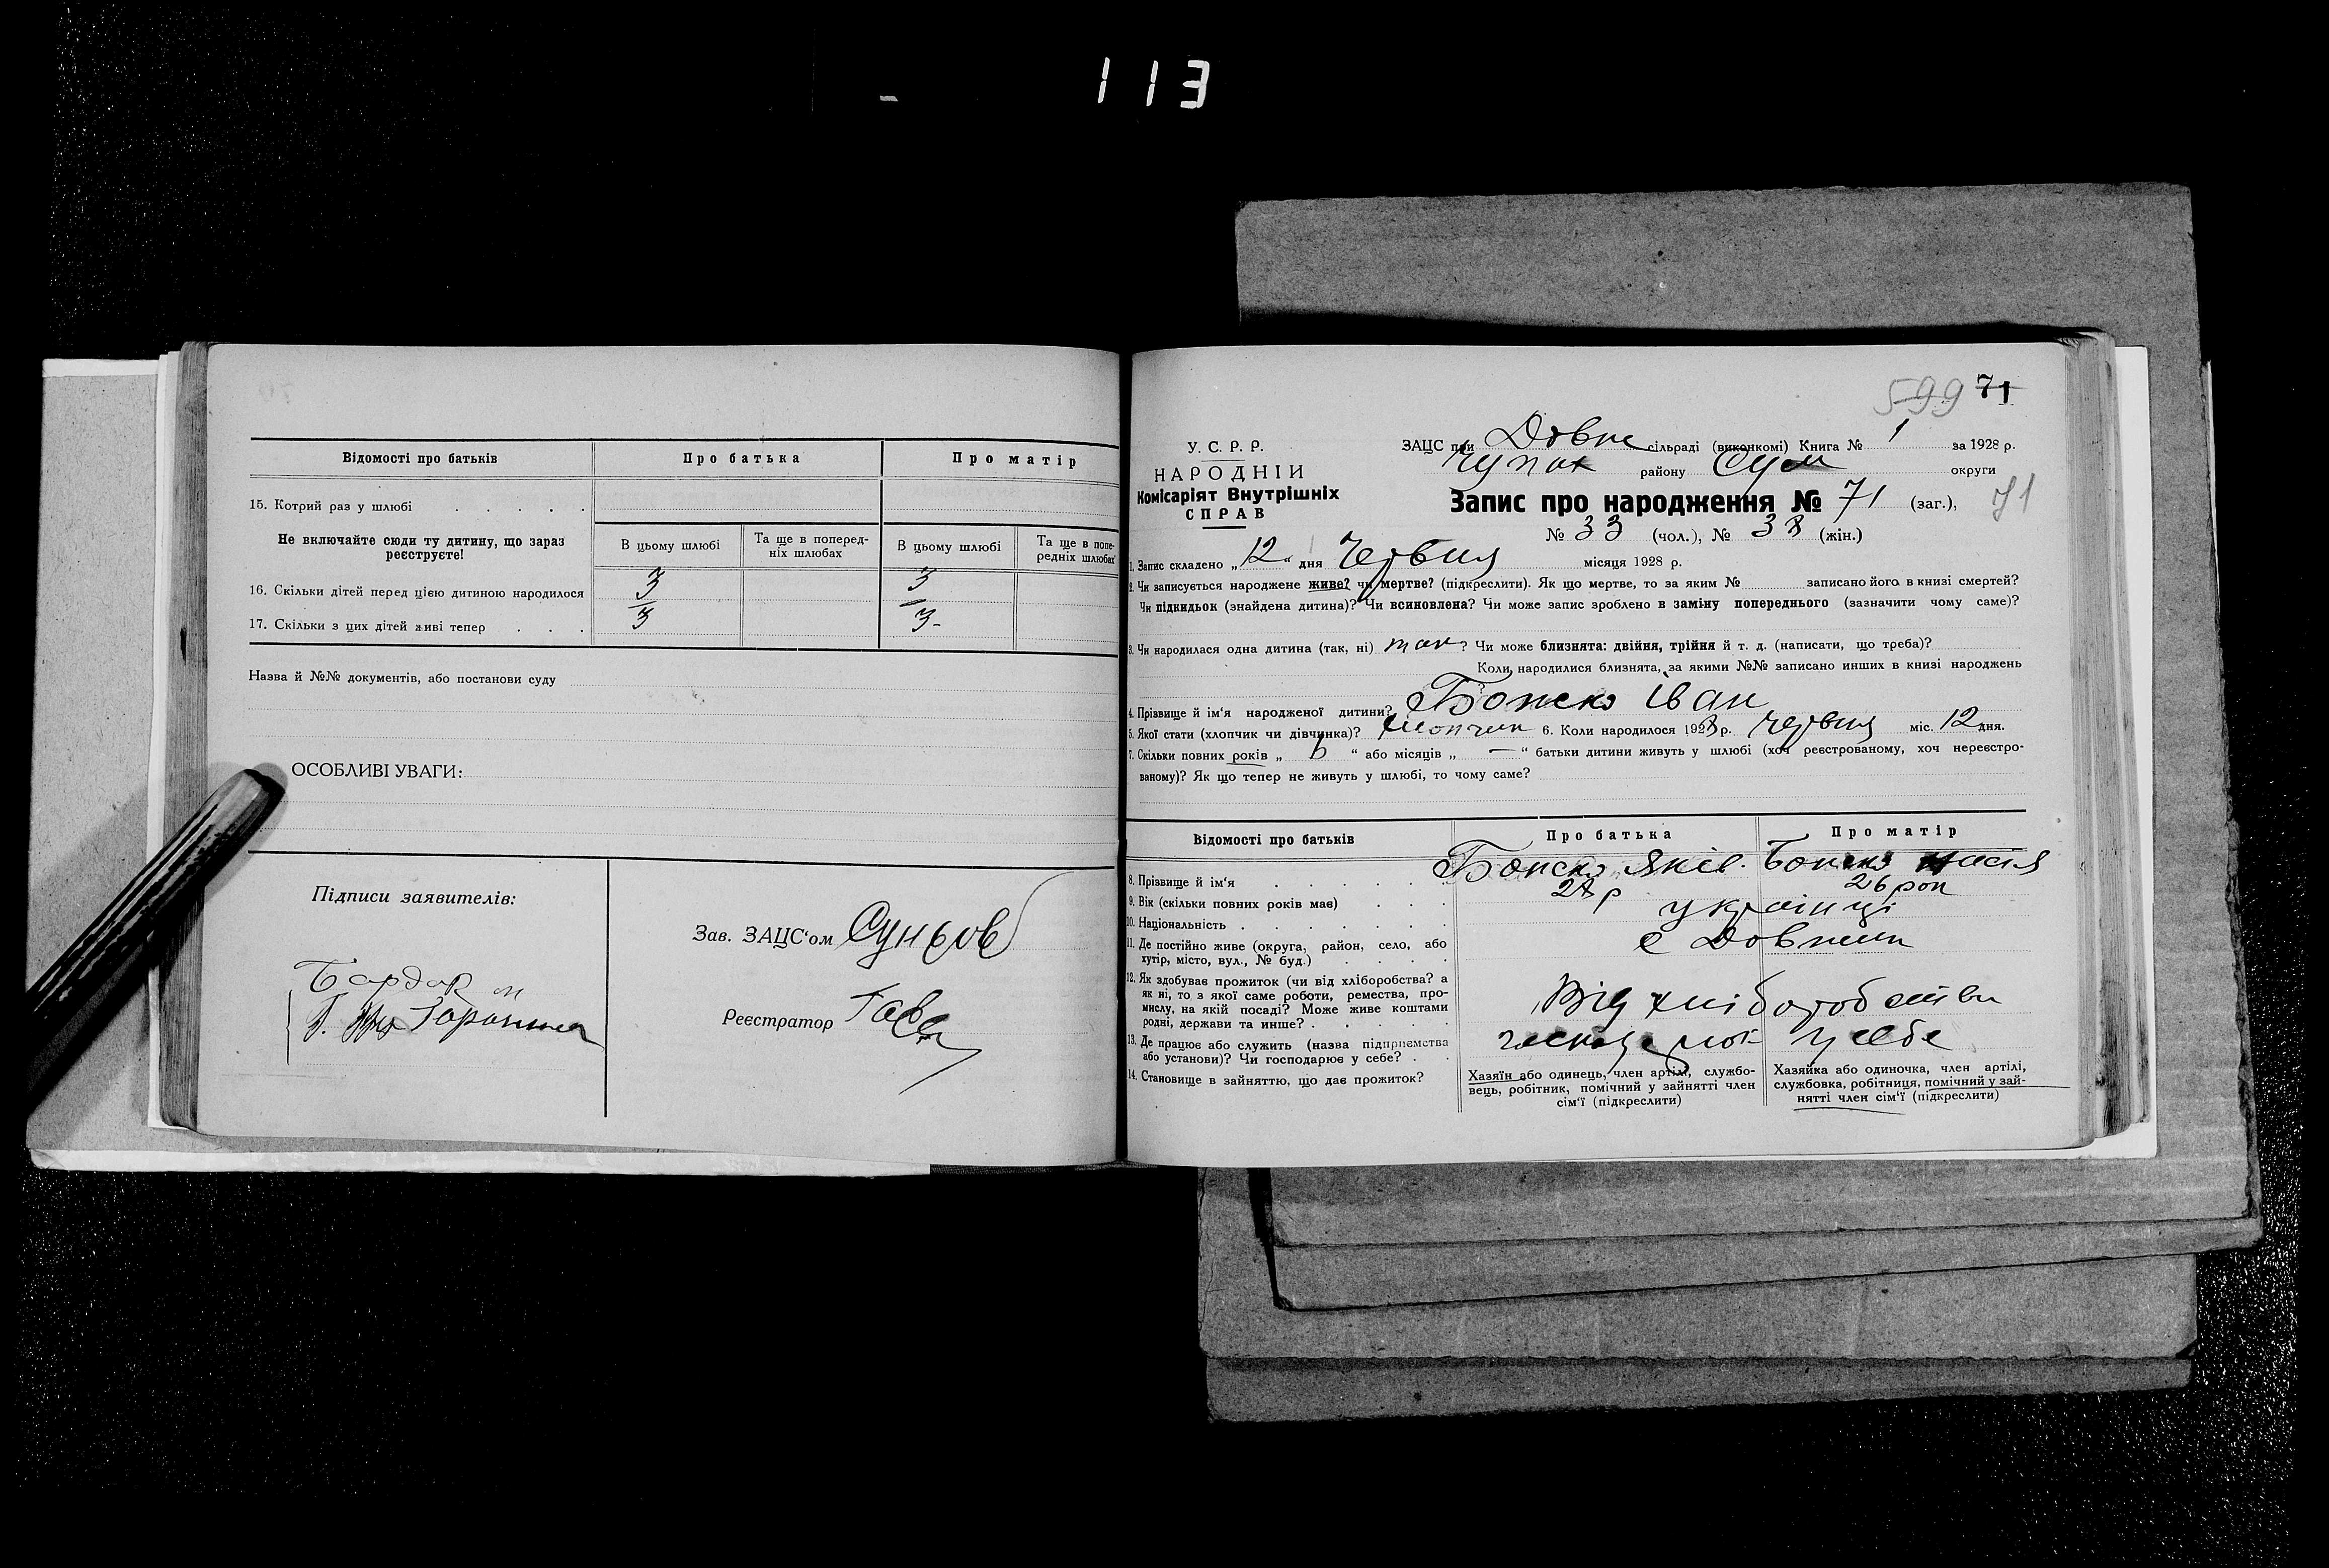 113
Відомості про батьків
Про батька
Про матір
15. Котрий раз у шлюбі
Не включайте сюди ту дитину, що зараз реєструєте!
В цьому шлюбі
Та ще в попередніх шлюбах
В цьому шлюбі
Та ще в попередніх шлюбах
16. Скільки дітей перед цією дитиною народилося 3 3
17. Скільки з цих дітей живі тепер 3 3
Назва й №№ документів, або постанови суду
ОСОБЛИВІ УВАГИ:
Підписи заявителів:
Зав. ЗАЦС'ом
Реєстратор
599 71
У. С. Р. Р.
НАРОДНІЙ
Комісаріят Внутрішніх
СПРАВ
ЗАЦС при Довж сільраді (виконкомі) Книга № 1 за 1928 р.
Чупах району Сум округи
Запис про народження № 71 (заг.), 71
№ 33 (чол.), № 38 (жін.)
1. Запис складено „12" дня Червня місяця 1928 р.
2. Чи записується народжене живе? чи мертве? (підкреслити). Як що мертве, то за яким № записано його в книзі смертей?
Чи підкидьок (знайдена дитина)? Чи всиновлена? Чи може запис зроблено в заміну попереднього (зазначити чому саме)?
3. Чи народилася одна дитина (так, ні) так? Чи може близнята: двійня, трійня й т. д. (написати, що треба)?
Коли народилися близнята, за якими №№ записано инших в книзі народжень
4. Прізвище й ім'я народженої дитини? Іван
5. Якої стати (хлопчик чи дівчинка)? Хлопчик 6. Коли народилося 1928 р. Червня міс. 12 дня.
7. Скільки повних років „ 6 " або місяців „ — " батьки дитини живуть у шлюбі (хоч реєстрованому, хоч нереєстро-
ваному)? Як що тепер не живуть у шлюбі, то чому саме?
Відомості про батьків
Про батька
Про матір
8. Прізвище й ім'я Яків
9. Вік (скільки повних років має) 26 рок
10. Національність українці
11. Де постійно живе (округа, район, село, або
хутір, місто, вул., № буд.) с Довжик
12. Як здобуває прожиток (чи від хліборобства? а
як ні, то з якої саме роботи, ремества, про-
мислу, на якій посаді? Може живе коштами
родні, держави та инше? Від хліборобства
13. Де працює або служить (назва підприємства
або установи)? Чи господарює у себе? у себе
14. Становище в зайняттю, що дає прожиток?
Хазяїн або одинець, член артілі, службо-
вець, робітник, помічний у зайнятті член
сім'ї (підкреслити)
Хазяйка або одиночка, член артілі,
службовка, робітниця, помічний у зай-
нятті член сім'ї (підкреслити)